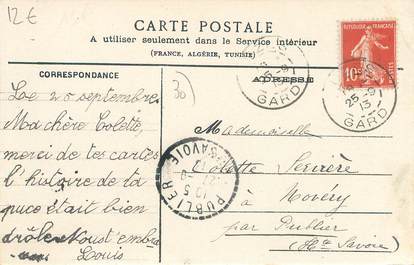 12€
CARTE POSTALE
A utiliser seulement dans le Service intérieur
(FRANCE, ALGÉRIE, TUNISIE)
CORRESPONDANCE
ADRESSE
30
10c
25-9
13
GARD
25-9
13
GARD
Le 25 septembre.
Ma chère Colette,
merci de tes cartes
l'histoire de ta
puce était bien
drôle. Nous t'embr
Louis
PUBLIER
SAVOIE
Mademoiselle
Colette Serrière
à
Novéry
par Publier
(Hte Savoie)